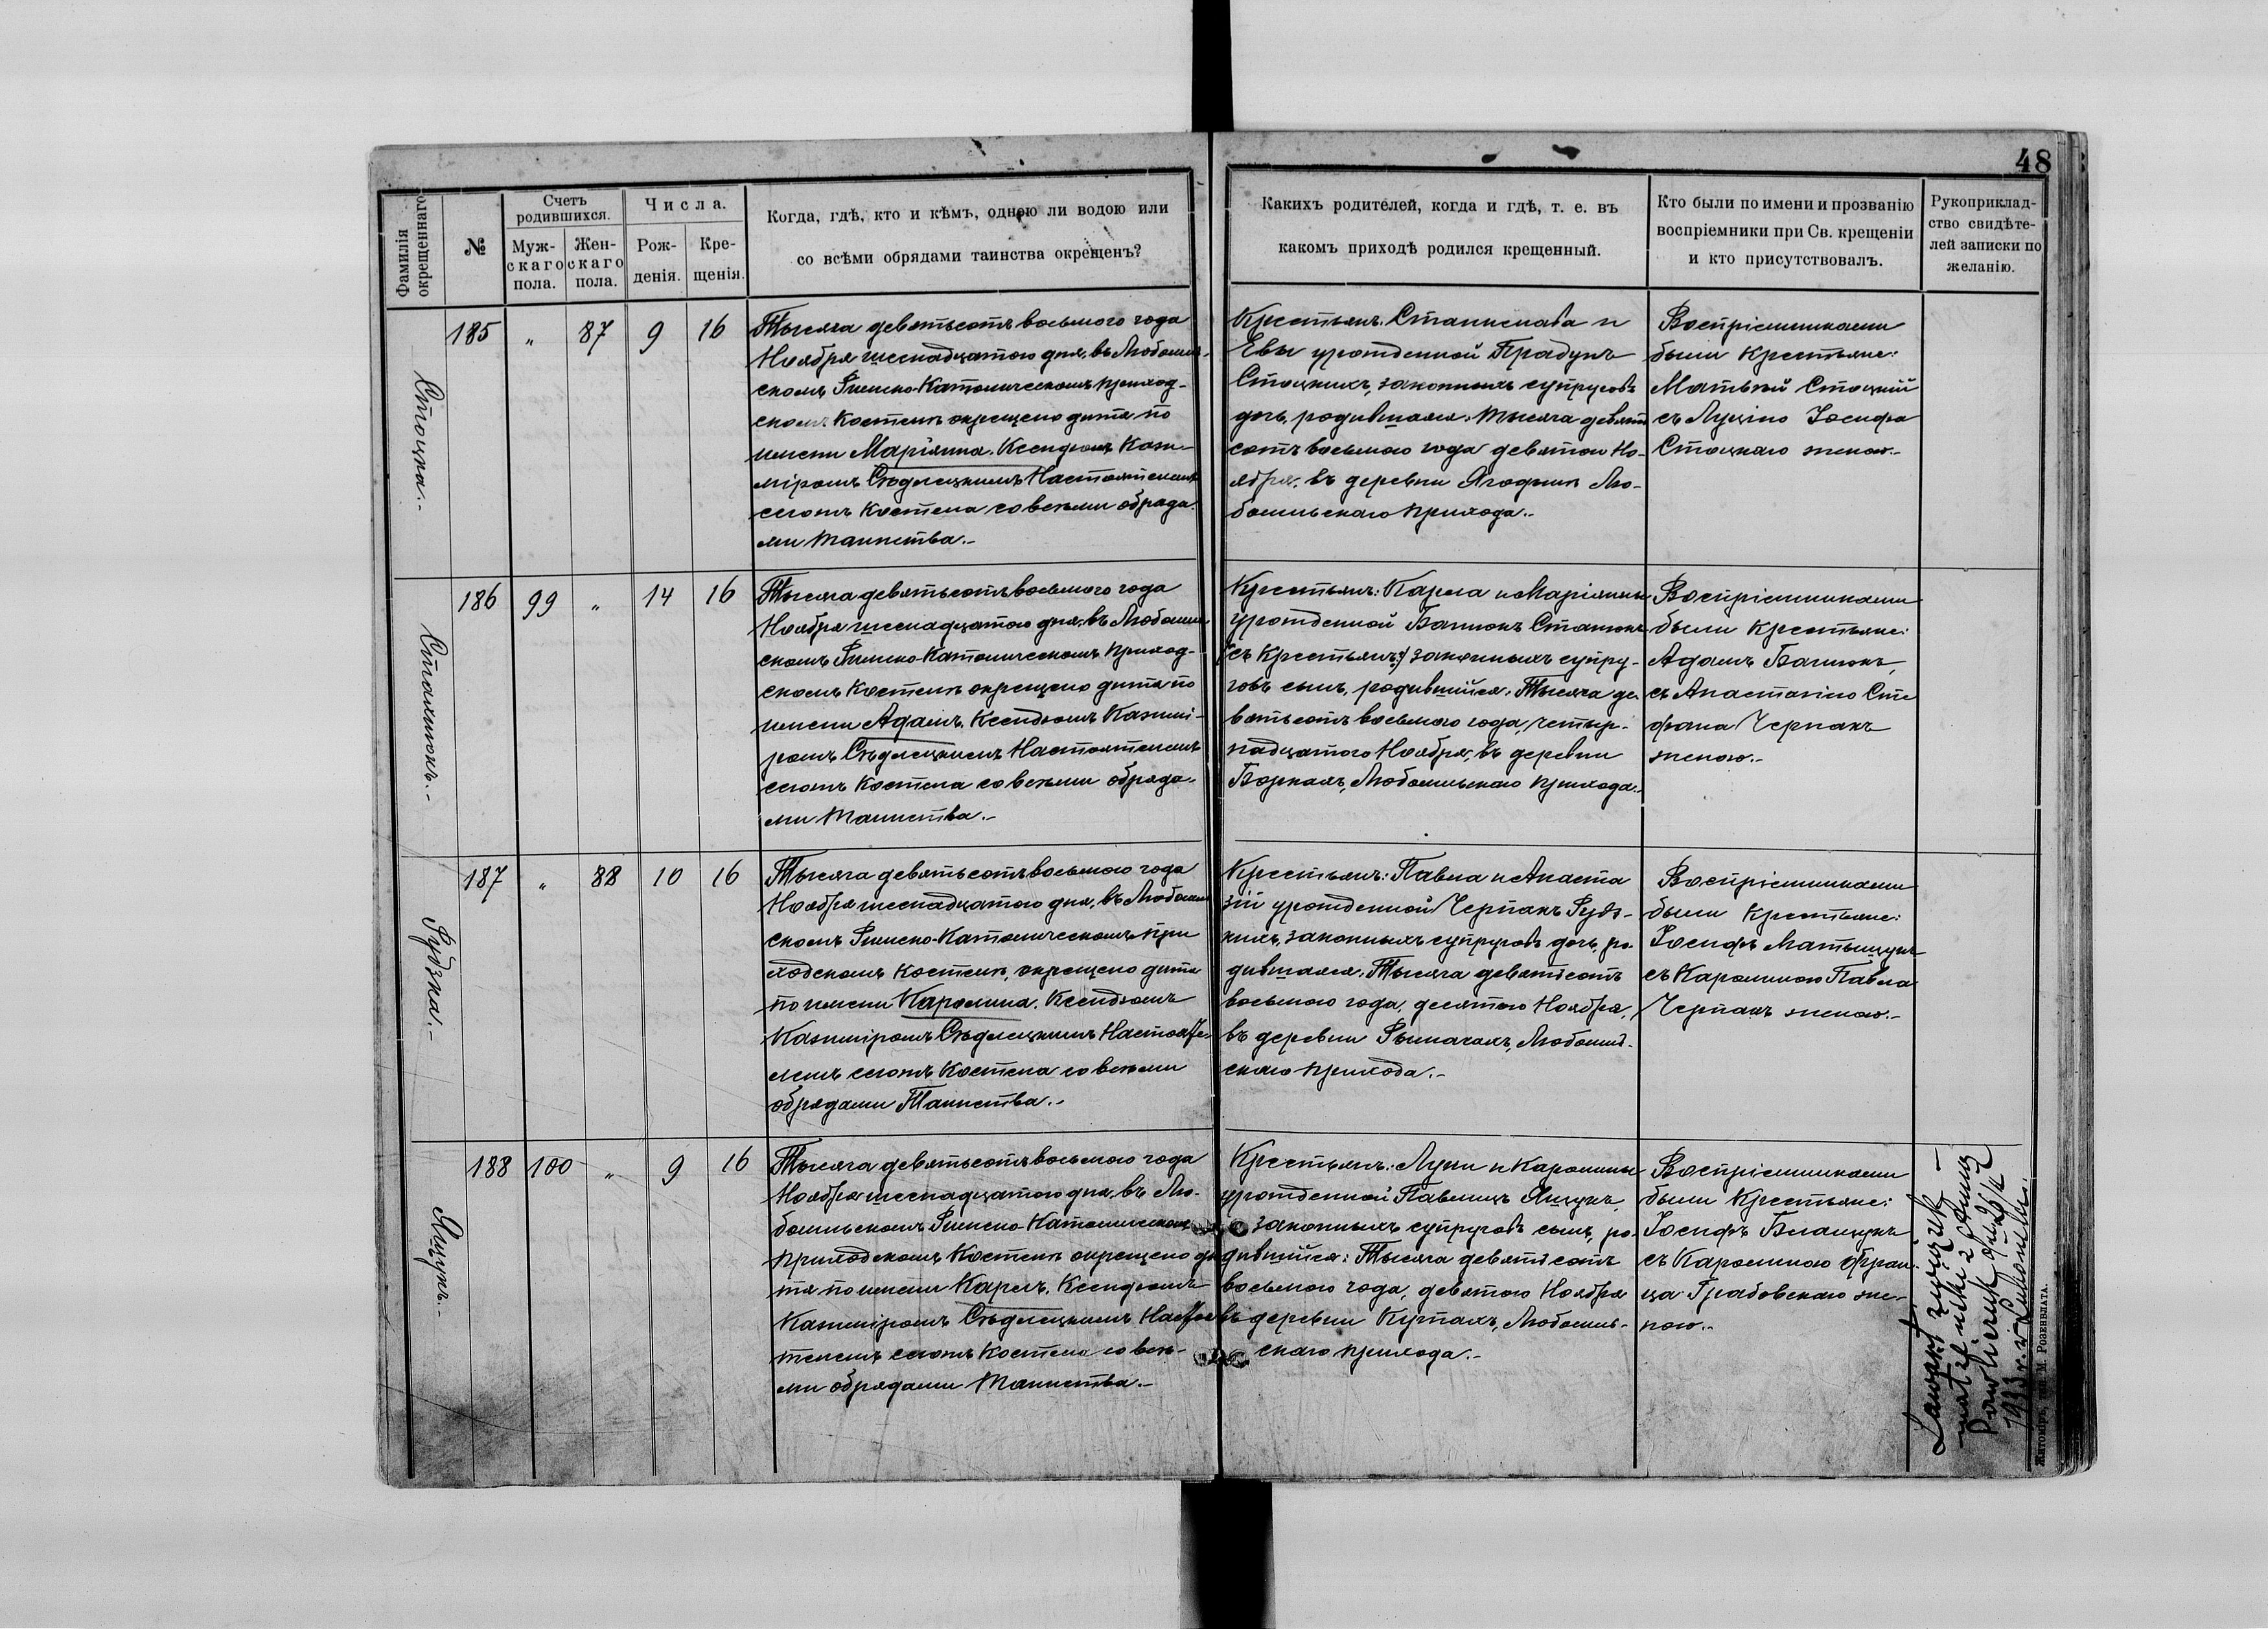 48
Фамилія
окрещеннаго
№
Счетъ
родившихся.
Муж-
скаго
пола.
Жен-
скаго
пола.
Числа.
Рож-
денія.
Кре-
щенія.
Когда, гдѣ, кто и кѣмъ, одною ли водою или
со всѣми обрядами таинства окрещенъ?
Какихъ родителей, когда и гдѣ, т. е. въ
какомъ приходѣ родился крещенный.
Кто были по имени и прозванію
воспріемники при Св. крещеніи
и кто присутствовалъ.
Рукоприклад-
ство свидѣте-
лей записки по
желанію.
Стоцка.-
185 " 87 9 16
Тысяча девятьсотъ восьмого года
Ноября шеснадцатого дня, въ Любомль-
скомъ Римско-Католическомъ приход-
скомъ Костелѣ окрещено дитя по
имени Маріянна. Ксендзомъ Кази-
міромъ Сѣдлецкимъ Настоятелемъ
сегожъ Костела со всѣми обряда-
ми таинства.-
Крестьянъ: Станислава и
Евы урожденной Прадунъ
Стоцкихъ, законныхъ супруговъ
дочь, родившаяся: тысяча девять
сотъ восьмого года девятого Но-
ября, въ деревни Ягодынѣ Лю-
бомльскаго прихода.-
Воспріемниками
были крестьяне:
Матвѣй Стоцкій
съ Луціею Іосифа
Стоцкаго женою.-
Стахнюкъ.-
186 99 " 14 16
Тысяча девятьсотъ восьмого года
Ноября шеснадцатого дня, въ Любомль-
скомъ Римско-Католическомъ приход-
скомъ Костелѣ окрещено дитя по
имени Адамъ. Ксендзомъ Казимі-
ромъ Сѣдлецкимъ Настоятелемъ
сегожъ Костела со всѣми обряда-
ми таинства.-
Крестьянъ: Карла и Маріянны
урожденной
(съ Крестьянъ:) законныхъ супру-
говъ сынъ, родившійся: Тысяча де-
вятьсотъ восьмого года, четыр-
надцатого Ноября, въ деревни
Боркахъ, Любомльскаго прихода.-
Воспріемниками
были крестьяне:
Адамъ
съ Анастазіею Сте
фана Черпакъ
женою.-
Рудзка.-
187 " 88 10 16
Тысяча девятьсотъ восьмого года
Ноября шеснадцатого дня, въ Любомль
скомъ Римско-Католическомъ при
ходскомъ Костелѣ, окрещено дитя
по имени Каролина. Ксендзомъ
Казиміромъ Сѣдлецкимъ Настояте-
лемъ сегожъ Костела со всѣми
обрядами Таинства.-
Крестьянъ: Павла и Анаста
зіи урожденной Черпакъ Рудз-
кихъ, законныхъ супруговъ дочь, ро-
дившаяся: Тысяча девятьсотъ
восьмого года, десятого Ноября,
въ деревни Рымачахъ, Любомль-
скаго прихода.-
Воспріемниками
были крестьяне:
Іосифъ Матыщукъ
съ Каролиною Павла
Черпакъ женою.-
Ящукъ.-
188 100 " 9 16
Тысяча девятьсотъ восьмого года
Ноября шеснадцатого дня, въ Лю-
бомльскомъ Римско-Католическомъ
приходскомъ Костелѣ окрещено ди
тя по имени Карлъ. Ксендзомъ
Казиміромъ Сѣдлецкимъ Настоя
телемъ сегожъ Костела со всѣ-
ми обрядами таинства.-
Крестьянъ: Луки и Каролины
урожденной Павлищъ Ящукъ,
законныхъ супруговъ сынъ, ро-
дившійся: Тысяча девятьсотъ
восьмого года, девятого Ноября
въ деревни Кутахъ, Любомль-
скаго прихода.-
Воспріемниками
были Крестьяне:
Іосифъ
съ Каролиною Фран-
ца Грабовскаго же-
ною.-
Zawarł związek
małżeński z Anną
1933 r. w Lubomlu.
Житоміръ, тип. М. Розенблата.